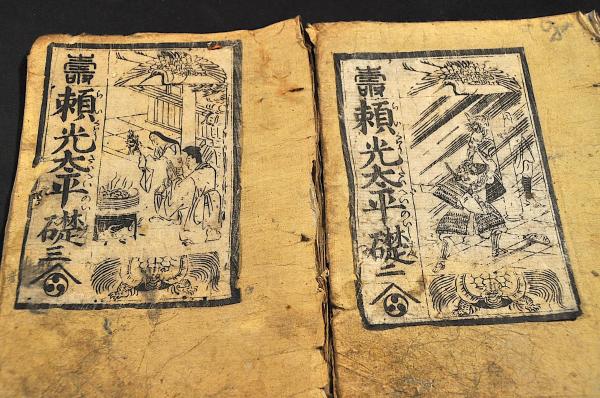 壽頼光太平礎二
壽頼光太平礎三